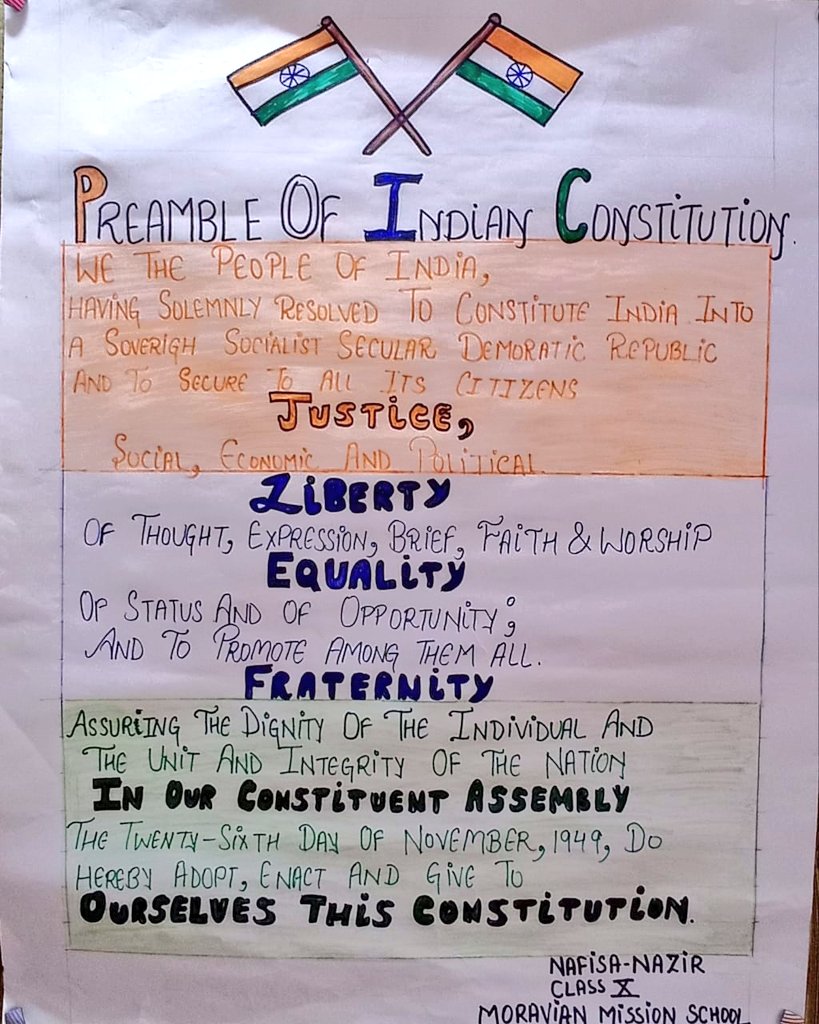 PREAMBLE OF INDIAN CONSTITUTION.
WE THE PEOPLE OF INDIA,
HAVING SOLEMNLY RESOLVED TO CONSTITUTE INDIA INTO
A SOVERIGH SOCIALIST SECULAR DEMORATIC REPUBLIC
AND TO SECURE TO ALL ITS CITIZENS
JUSTICE,
SOCIAL, ECONOMIC AND POLITICAL.
LIBERTY
OF THOUGHT, EXPRESSION, BRIEF, FAITH & WORSHIP
EQUALITY
OF STATUS AND OF OPPORTUNITY;
AND TO PROMOTE AMONG THEM ALL.
FRATERNITY
ASSURIING THE DIGNITY OF THE INDIVIDUAL AND
THE UNIT AND INTEGRITY OF THE NATION
IN OUR CONSTITUENT ASSEMBLY
THE TWENTY-SIXTH DAY OF NOVEMBER, 1949, DO
HEREBY ADOPT, ENACT AND GIVE TO
OURSELVES THIS CONSTITUTION.
NAFISA-NAZIR
CLASS X
MORAVIAN MISSION SCHOOL